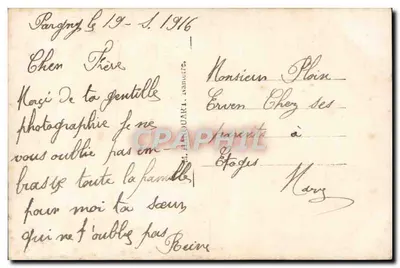 Pargny le 19-5.1916
Cher Frère
Merçi de ta gentille
photographie Je ne
vous oublie pas im
brasse toute la famille
pour moi ta sœur
qui ne t'oublie pas
Reine
Monsieur Ploix
Erven Chez ses
parents à
Etoges
Marne
CPARAMA.COM